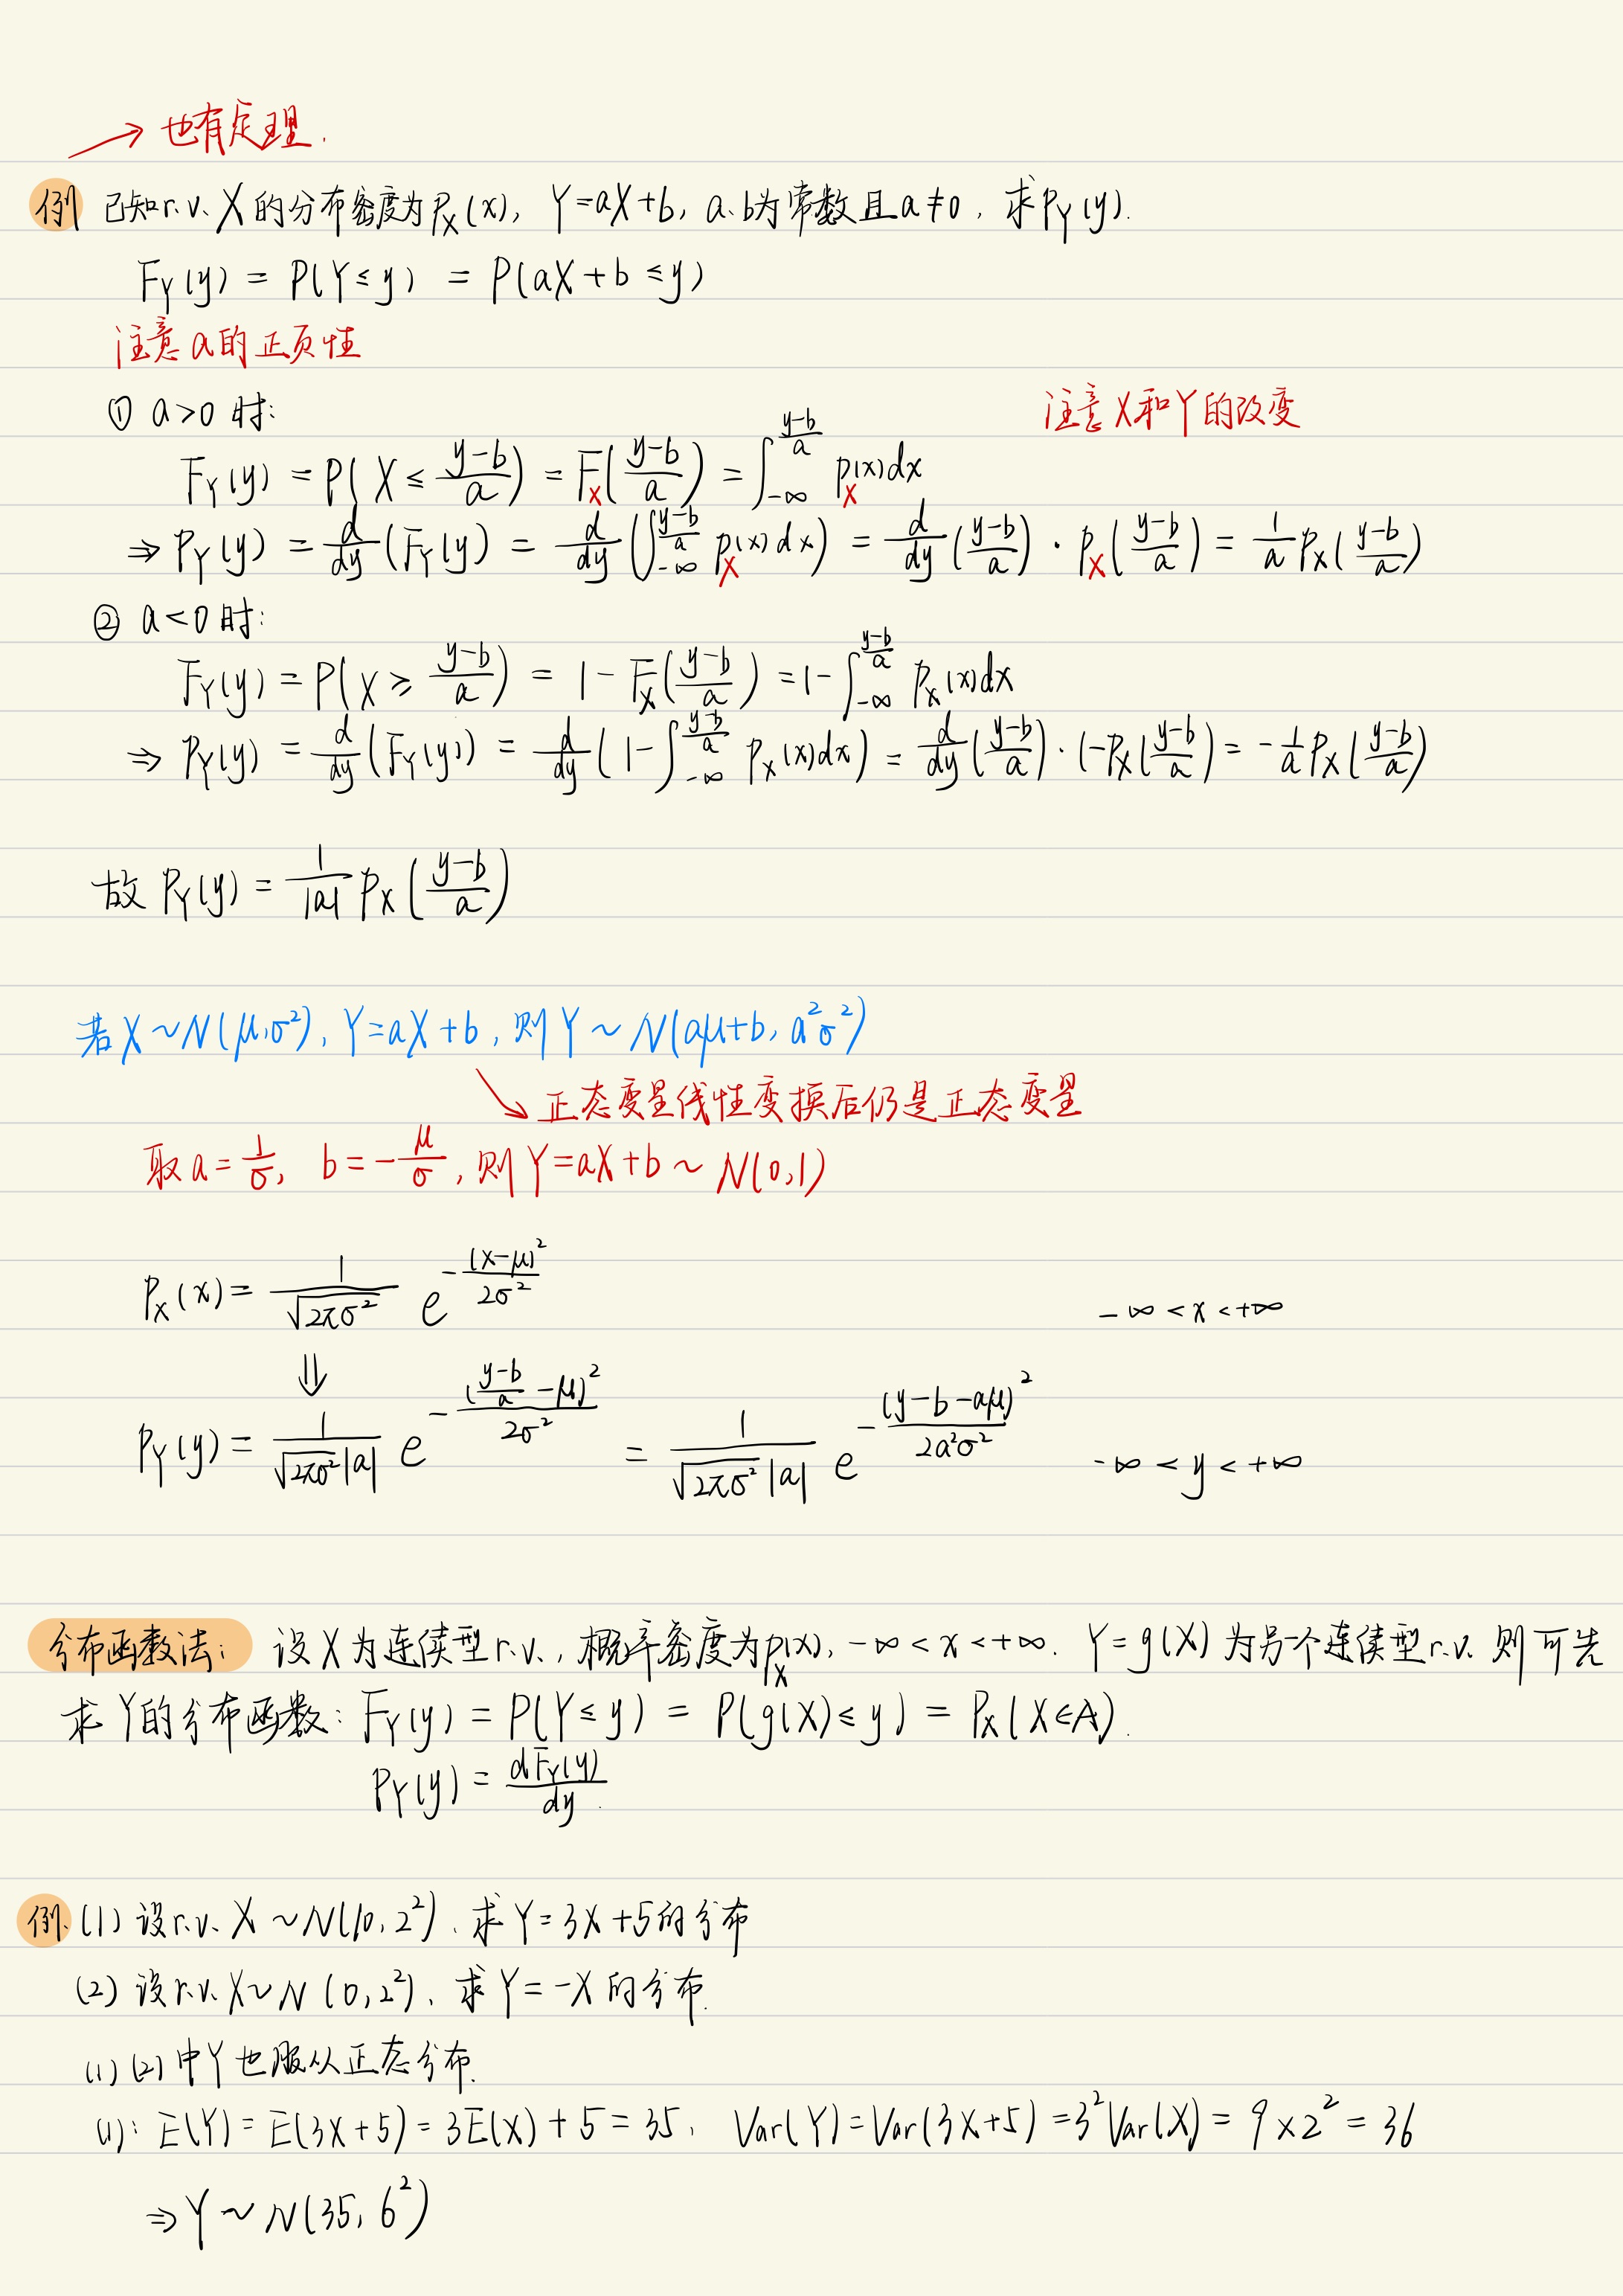 → 也有定理.
例 已知r.v. X的分布密度为P_X(x), Y=aX+b, a.b为常数且a≠0, 求P_Y(y).
F_Y(y) = P(Y≤y) = P(aX+b≤y)
注意a的正负性
① a>0时:
注意X和Y的改变
F_Y(y) = P(X≤\frac{y-b}{a}) = F_X(\frac{y-b}{a}) = ∫_{-∞}^{\frac{y-b}{a}} p_X(x)dx
⇒ P_Y(y) = \frac{d}{dy}(F_Y(y) = \frac{d}{dy}(∫_{-∞}^{\frac{y-b}{a}} p_X(x)dx) = \frac{d}{dy}(\frac{y-b}{a}) · p_X(\frac{y-b}{a}) = \frac{1}{a}p_X(\frac{y-b}{a})
② a<0时:
F_Y(y) = P(X≥\frac{y-b}{a}) = 1-F_X(\frac{y-b}{a}) = 1-∫_{-∞}^{\frac{y-b}{a}} p_X(x)dx
⇒ P_Y(y) = \frac{d}{dy}(F_Y(y)) = \frac{d}{dy}(1-∫_{-∞}^{\frac{y-b}{a}} p_X(x)dx) = \frac{d}{dy}(\frac{y-b}{a}) · (-P_X(\frac{y-b}{a}) = -\frac{1}{a}P_X(\frac{y-b}{a})
故 P_Y(y) = \frac{1}{|a|}p_X(\frac{y-b}{a})
若X~N(μ,σ²), Y=aX+b, 则Y~N(aμ+b, a²σ²)
↘ 正态变量线性变换后仍是正态变量
取a=\frac{1}{σ}, b=-\frac{μ}{σ}, 则Y=aX+b~N(0,1)
P_X(x) = \frac{1}{\sqrt{2πσ²}} e^{-\frac{(x-μ)²}{2σ²}} -∞<x<+∞
⇓
P_Y(y) = \frac{1}{\sqrt{2πσ²}|a|} e^{-\frac{(\frac{y-b}{a}-μ)²}{2σ²}} = \frac{1}{\sqrt{2πσ²}|a|} e^{-\frac{(y-b-aμ)²}{2a²σ²}} -∞<y<+∞
分布函数法: 设X为连续型r.v., 概率密度为p_X(x), -∞<x<+∞. Y=g(X)为另一个连续型r.v. 则可先
求Y的分布函数: F_Y(y) = P(Y≤y) = P(g(X)≤y) = P_X(X∈A).
P_Y(y) = \frac{dF_Y(y)}{dy}.
例. (1) 设r.v. X~N(10, 2²), 求Y=3X+5的分布
(2) 设r.v. X~N(0, 2²), 求Y=-X的分布.
(1)(2)中Y也服从正态分布.
(1): E(Y) = E(3X+5) = 3E(X)+5 = 35, Var(Y) = Var(3X+5) = 3²Var(X) = 9×2² = 36
⇒ Y~N(35, 6²)